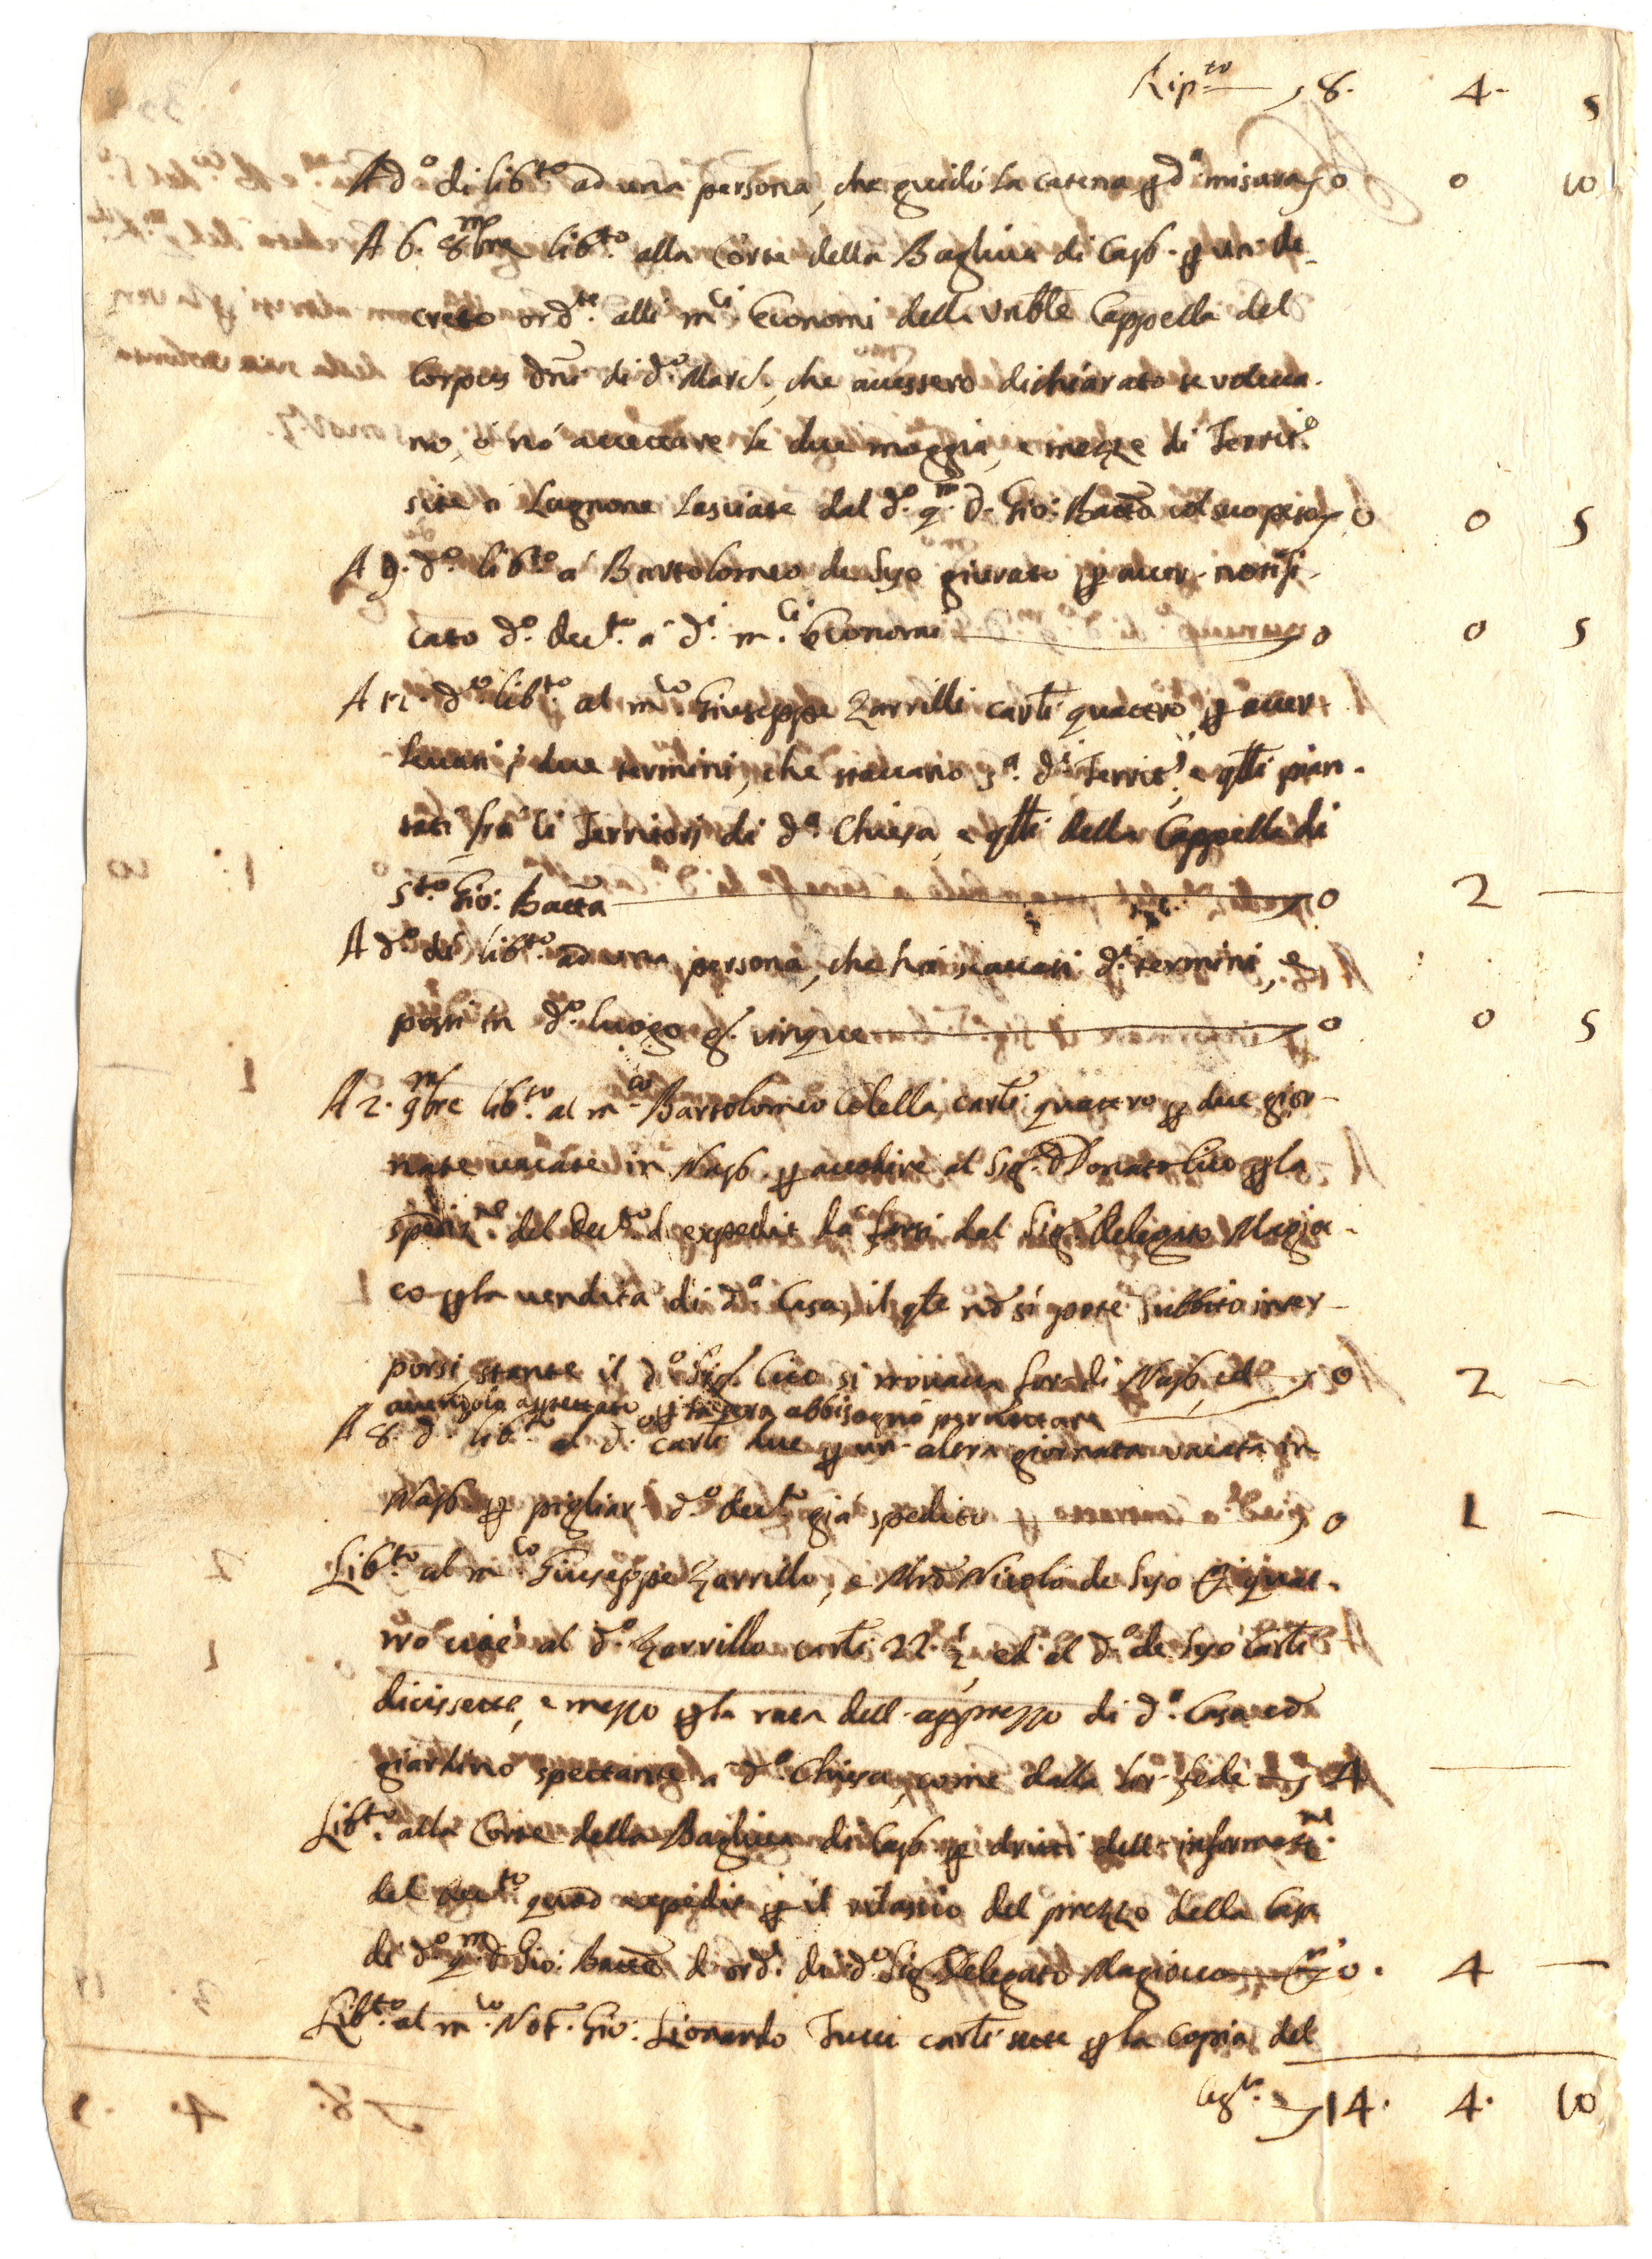 Rip.to — 8. 4. 5
A d.o dì lib.to ad una persona, che guidò la catena p d.a misura 0 0 10
A 6. 8bre lib.to alla Corte della Bagliva di Cap. p un de-
creto ord.te alli m.ci Economi della Vnble Cappella del
Corpus Dni di d.o Marc., che avessero dichiarato se voleva-
no, ò nò accettare le due moggia, e mezze di Territ.o
site à Lugnone lasciate dal d.o q.m D. Gio: Batta col suo peso 0 0 5
A 9. d.o lib.to à Bartolomeo de Syo giurato p aver notifi-
cato d.o dec.to a d.i m.ci Economi 0 0 5
A 11. d.o lib.to al m.co Giuseppe Zarrilli carli quattro p aver
levati i due termini, che stavano s.a d.i Territ.i, e qlli pian-
tati frà li Territorj di d.a Chiesa, e qlli della Cappella di
S.to Gio: Batta 0 2 —
A d.o dì lib.to ad una persona, che hà scavati d.i termini, e
posti in d.o luogo g. cinque 0 0 5
A 2. 9bre lib.to al m.co Bartolomeo Colella carli quattro p due gior-
nate vacate in Nap. p assistire al Sig. D. Donato Cito p la
spediz.ne del dec.to di expedit da farsi dal Sig. Delegato Magio-
co p la vendita di d.a Casa, il qle nõ si potè subbito inter-
porsi stante il d.o Sig. Cito si trovava fora di Nap., ed 0 2 —
avendolo aspettato p la sera abbisognò pernottare
A 8. d.o lib.to al d.o carli due p un'altra giornata vacata in
Nap. p pigliar d.o dec.to già spedito 0 1 —
Lib.to al m.co Giuseppe Zarrillo, e Mro Nicola de Syo quat-
tro cioè al d.o Zarrillo carli 22 ½, ed al d.o de Syo carli
dicissette, e mezzo p la rata dell'apprezzo di d.a Casa, ed
giardino spettante à d.a Chiesa, come dalla lor fede 4 —
Lib.to alla Corte della Bagliva di Cap. p dritti dell'informaz.ne
del dec.to quod expedit p il rilascio del prezzo della Casa
di d.o q.m D. Gio: Batta d'ord. di d.o Sig. Delegato Magioco 0. 4 —
Lib.to al m.co Not. Gio: Lionardo Tucci carli sette p la copia del
14. 4. 10